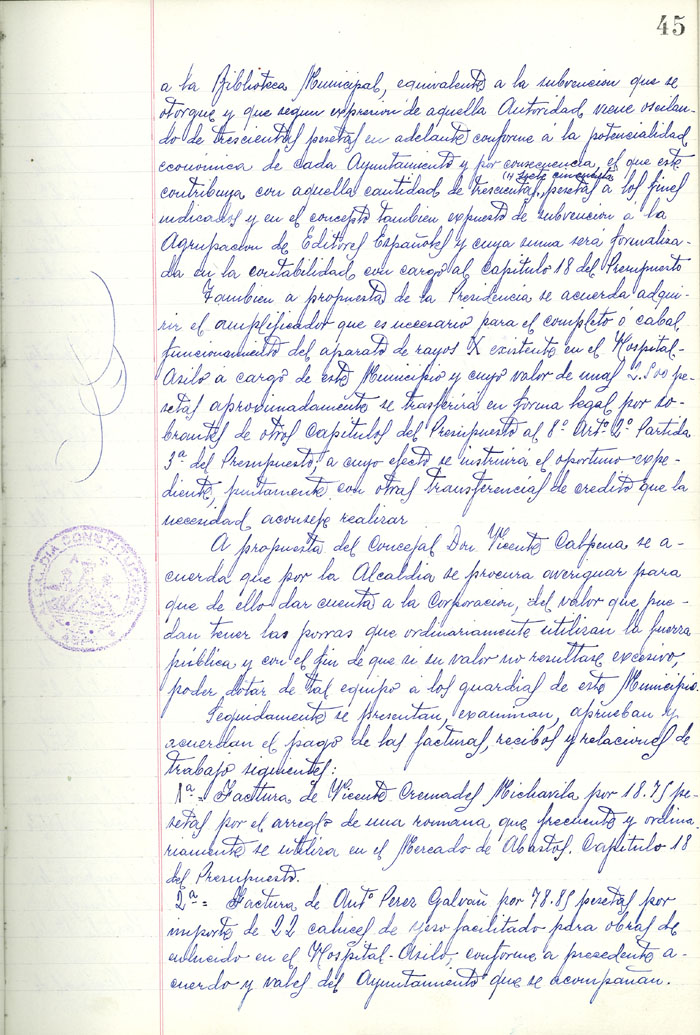 45
a la Biblioteca Municipal, equivalente a la subvencion que se
otorgue y que segun expresion de aquella Autoridad viene oscilan-
do de trescientas pesetas en adelante conforme a la potencialidad
economica de cada Ayuntamiento y por consecuencia, el que este
contribuya con aquella cantidad de trescientas pesetas a los fines
indicados y en el concepto tambien expuesto de subvencion a la
Agrupacion de Editores Españoles y cuya suma será formaliza-
da en la contabilidad con cargo al capitulo 18 del Presupuesto
Tambien a propuesta de la Presidencia se acuerda adqui-
rir el amplificador que es necesario para el completo ó cabal
funcionamiento del aparato de rayos X existente en el Hospital-
Asilo a cargo de este Municipio y cuyo valor de unas 2.500 pe-
setas aproximadamente se trasferirá en forma legal por so-
brantes de otros Capitulos del Presupuesto al 8º Artº 2º Partida
3ª del Presupuesto, a cuyo efecto se instruirá el oportuno expe-
diente, juntamente con otras transferencias de credito que la
necesidad aconseje realizar
A propuesta del Concejal Don Vicente Calpena se a-
cuerda que por la Alcaldia se procura averiguar para
que de ello dar cuenta a la Corporacion, del valor que pue-
dan tener las porras que ordinariamente utilizan la fuerza
pública y con el fin de que si su valor no resultase excesivo,
poder dotar de tal equipo a los guardias de este Municipio.
Seguidamente se presentan, examinan, aprueban y
acuerdan el pago de las facturas, recibos y relaciones de
trabajo siguientes:
1ª = Factura de Vicente Cremades Michavila por 18.75 pe-
setas por el arreglo de una romana que frecuente y ordina
riamente se utiliza en el Mercado de Abastos. Capitulo 18
del Presupuesto.
2ª = Factura de Antº Perez Galvañ por 78.85 pesetas por
importe de 22 cahices de yeso facilitado para obras de
enlucido en el Hospital-Asilo, conforme a precedente a-
cuerdo y vales del Ayuntamiento que se acompañan.